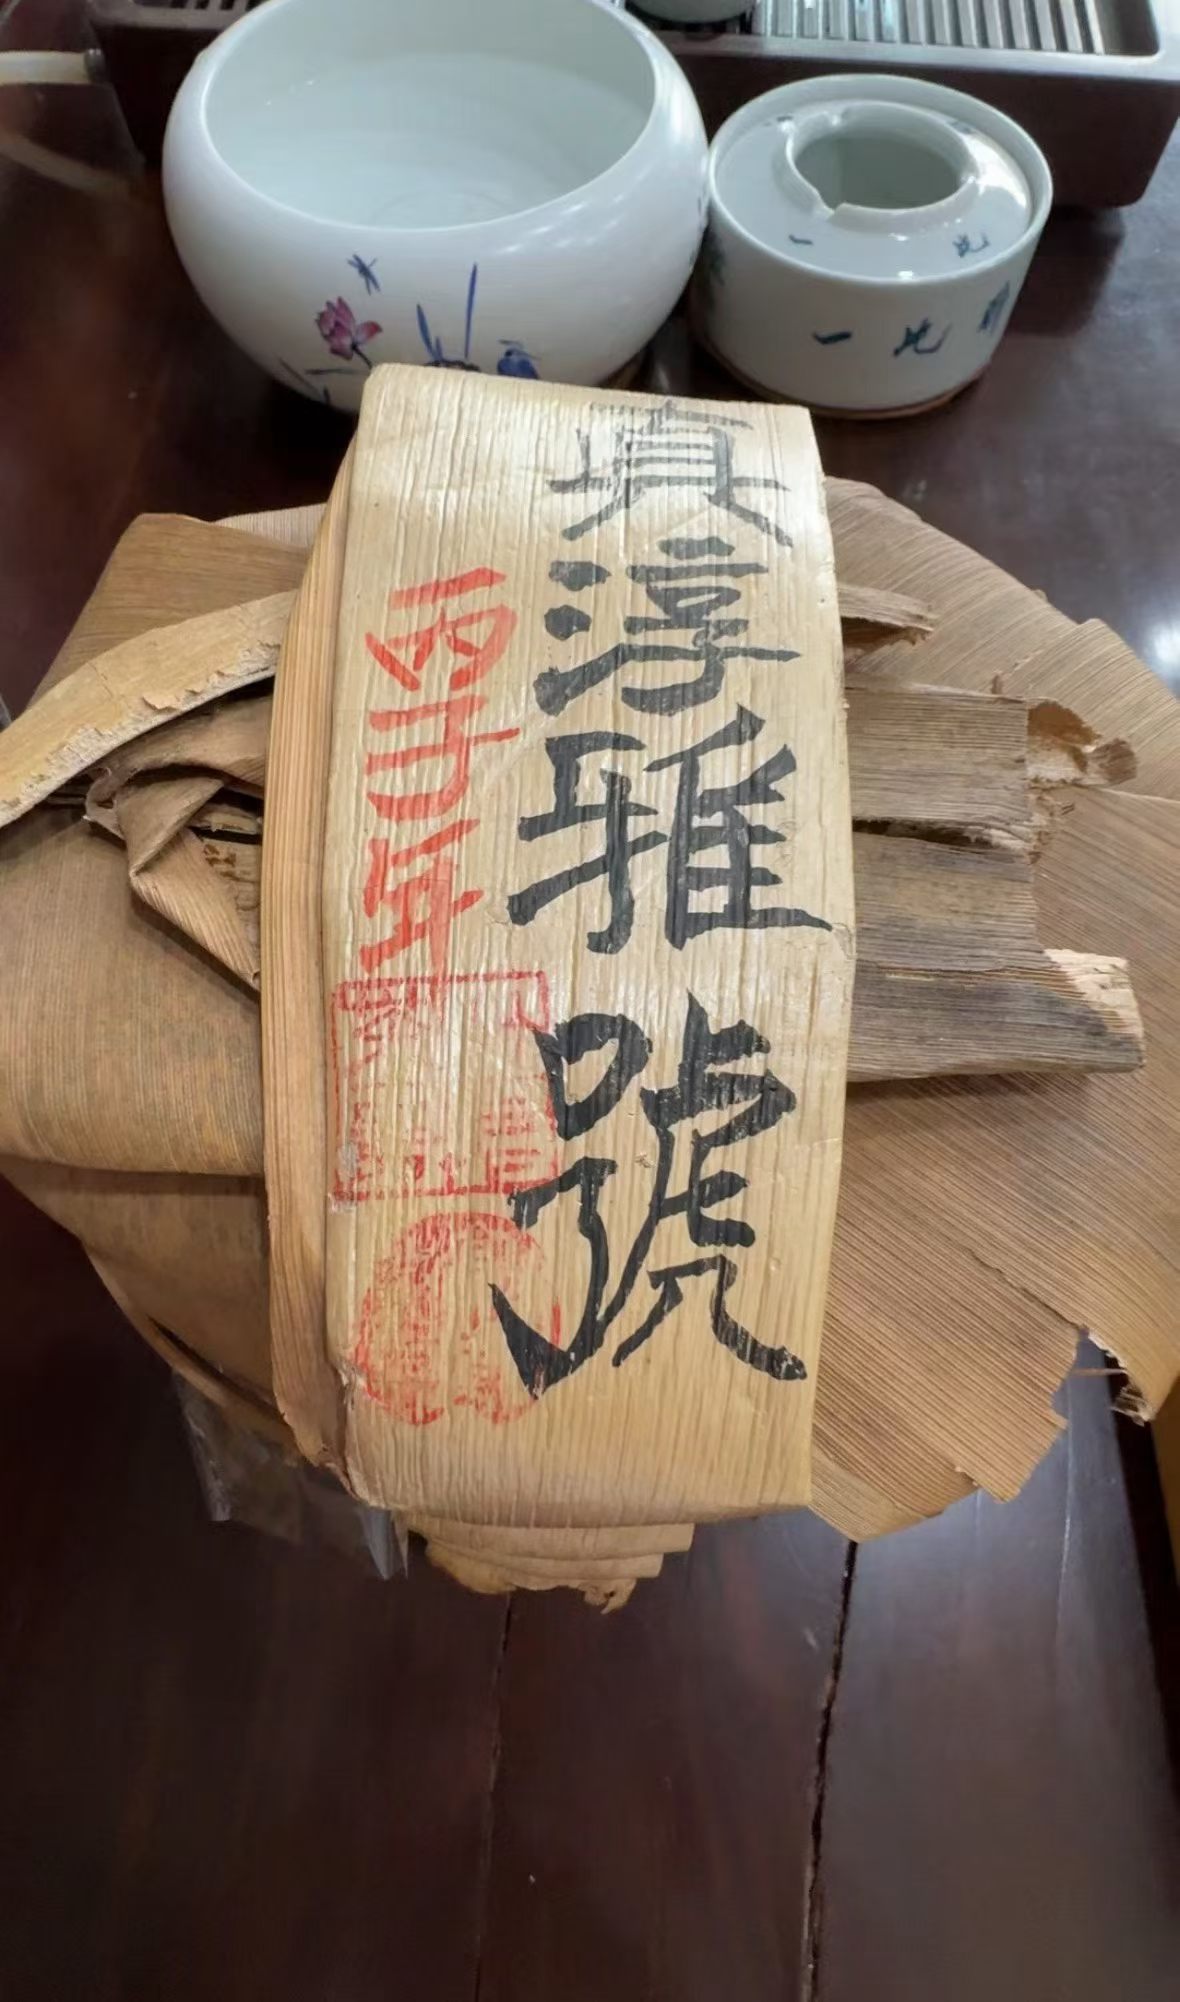 真淳雅號
丙子年
一
一片